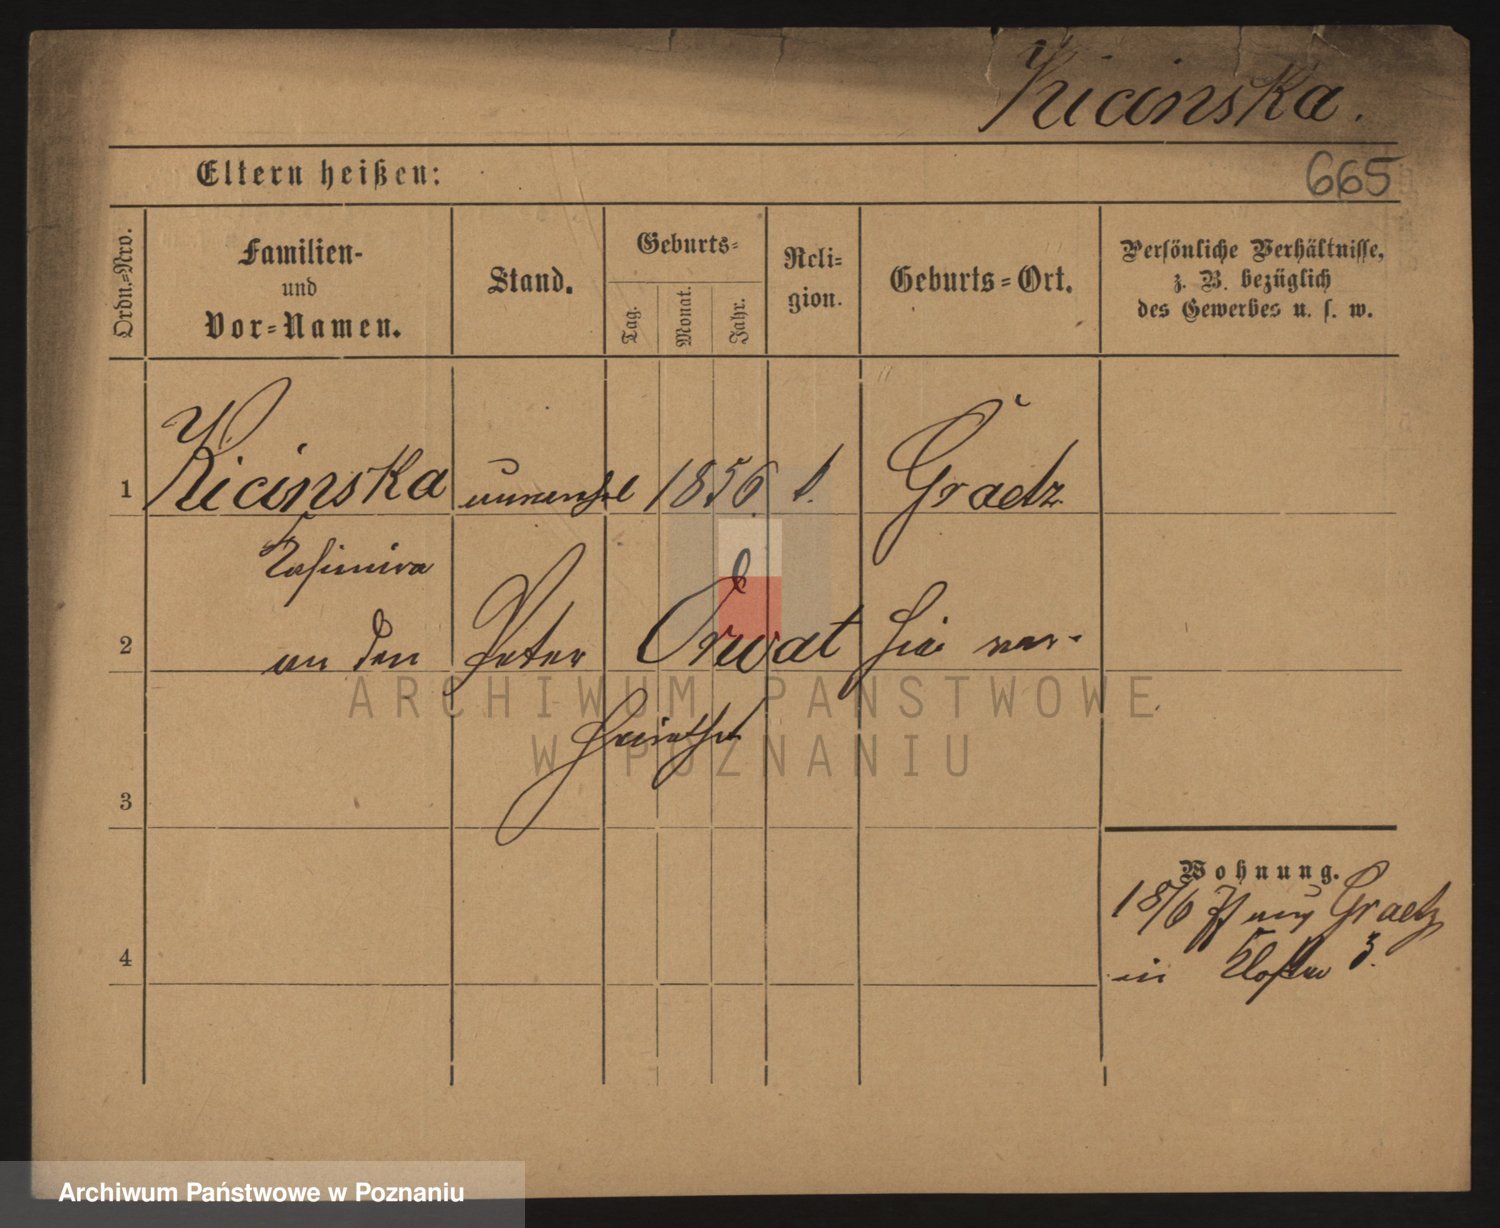 Kicinska.
Eltern heißen:
665
Ordn.=Nro.
Familien-
und
Vor=Namen.
Stand.
Geburts=
Tag.
Monat.
Jahr.
Reli=
gion.
Geburts=Ort.
Persönliche Verhältnisse,
z. B. bezüglich
des Gewerbes u. s. w.
1 Kicinska unverehel 1856. k. Graetz
Kasimira
2 an den Peter Orwat hie ver-
heirathet
3
Wohnung.
18/6 77 aus Graetz
in Kloster 3.
4
ARCHIWUM PAŃSTWOWE
W POZNANIU
Archiwum Państwowe w Poznaniu